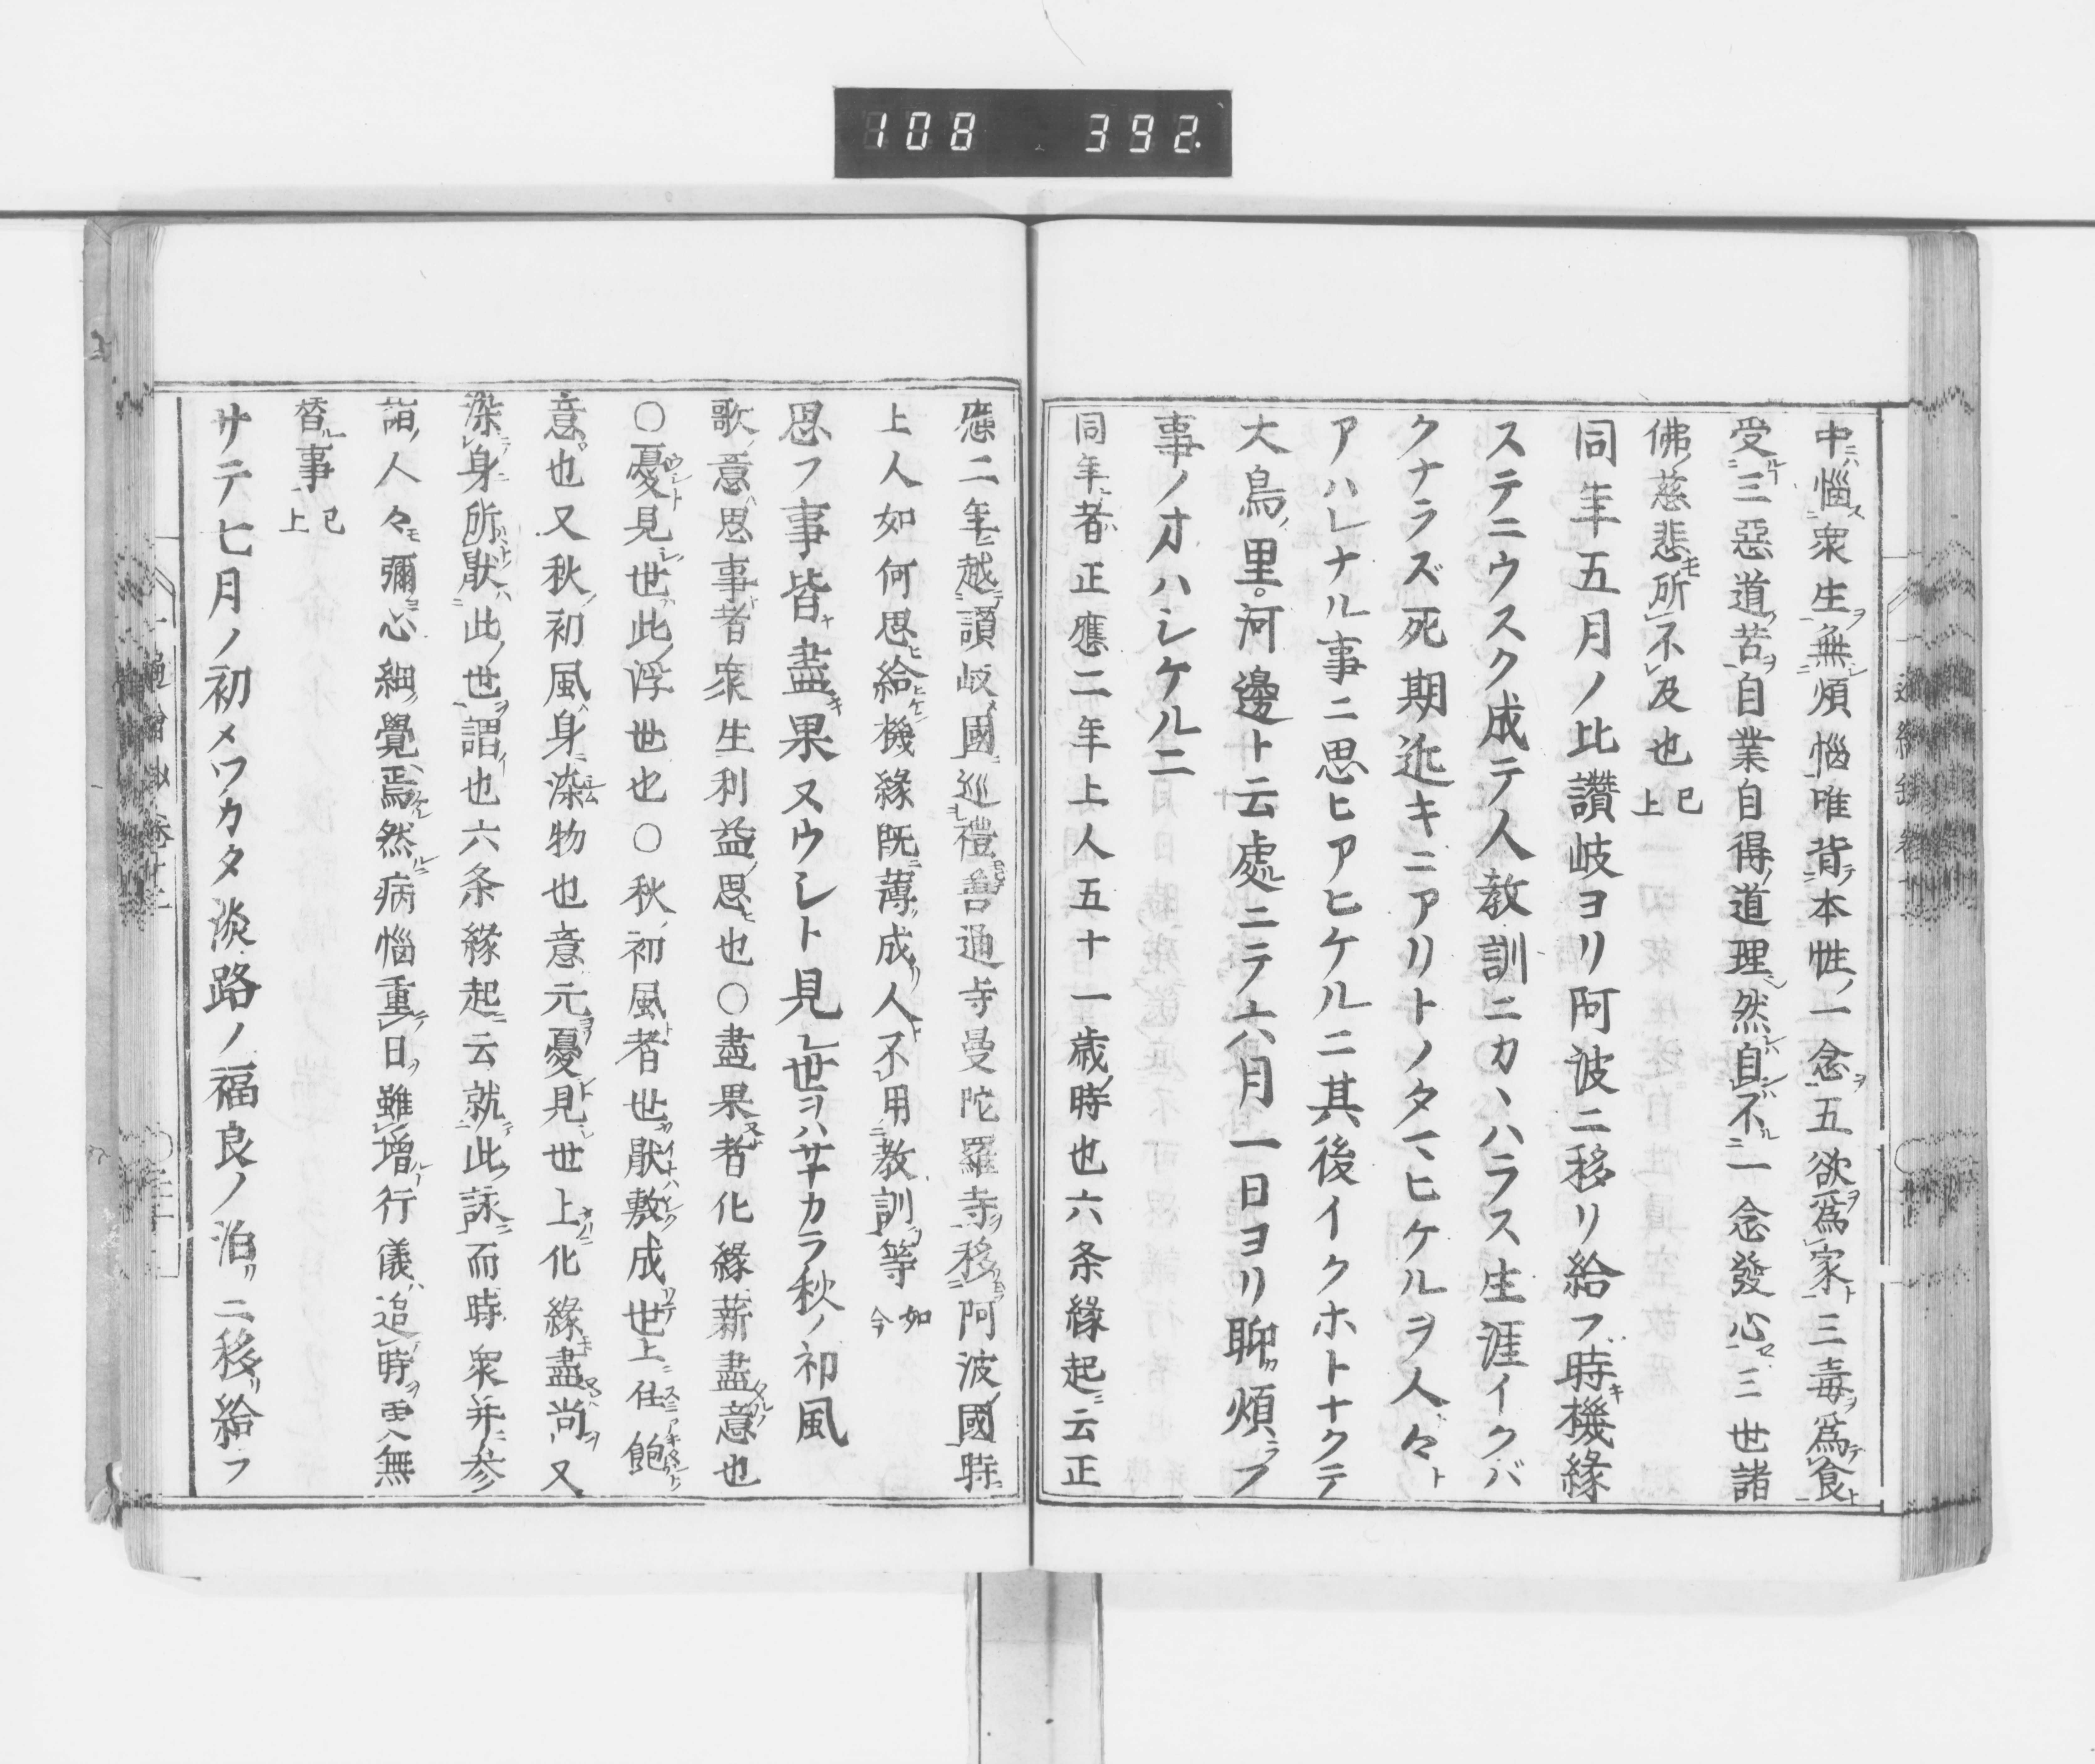 108 392
中惱衆生無煩惱唯背本性一念五欲爲家三毒爲食
受三惡道苦自業自得道理然自不一念發心三世諸
佛慈悲所不及也已上
同年五月ノ比讚岐ヨリ阿波ニ移リ給フ時機縁
ステニウスク成テ人教訓ニカヽハラス生涯イクバ
クナラズ死期近キニアリトノタマヒケルヲ人々
アハレナル事ニ思ヒアヒケルニ其後イクホトナクテ
大鳥里河邊ト云處ニテ六月一日ヨリ聊煩フ
事ノオハシケルニ
同年者正應二年上人五十一歳時也六条縁起云正
應二年越讚岐國巡禮善通寺曼陀羅寺移阿波國時
上人如何思給機縁既薄成人不用教訓等如今
思フ事皆盡果又ウシト見シ世ヲハサナカラ秋ノ初風
歌意思事者衆生利益思也○盡果者化縁薪盡意也
○憂見世此浮世也○秋初風者世厭敷成世上住飽
意也又秋初風身染物也意元憂見世上化縁盡尚又
染身所厭此世謂也六条縁起云就此詠而時衆并参
詣人々彌心細覺焉然病惱重日雖増行儀追時更無
替事已上
サテ七月ノ初メワカタ淡路ノ福良ノ泊ニ移給フ